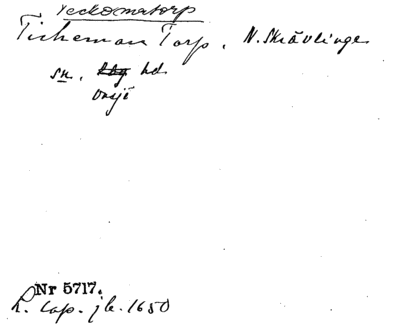 Yeckomatorp
Tickeman Torp. N. Skrävlinge
sn. hd.
Onsjö
Nr 5717.
L. Cap. jb. 1650